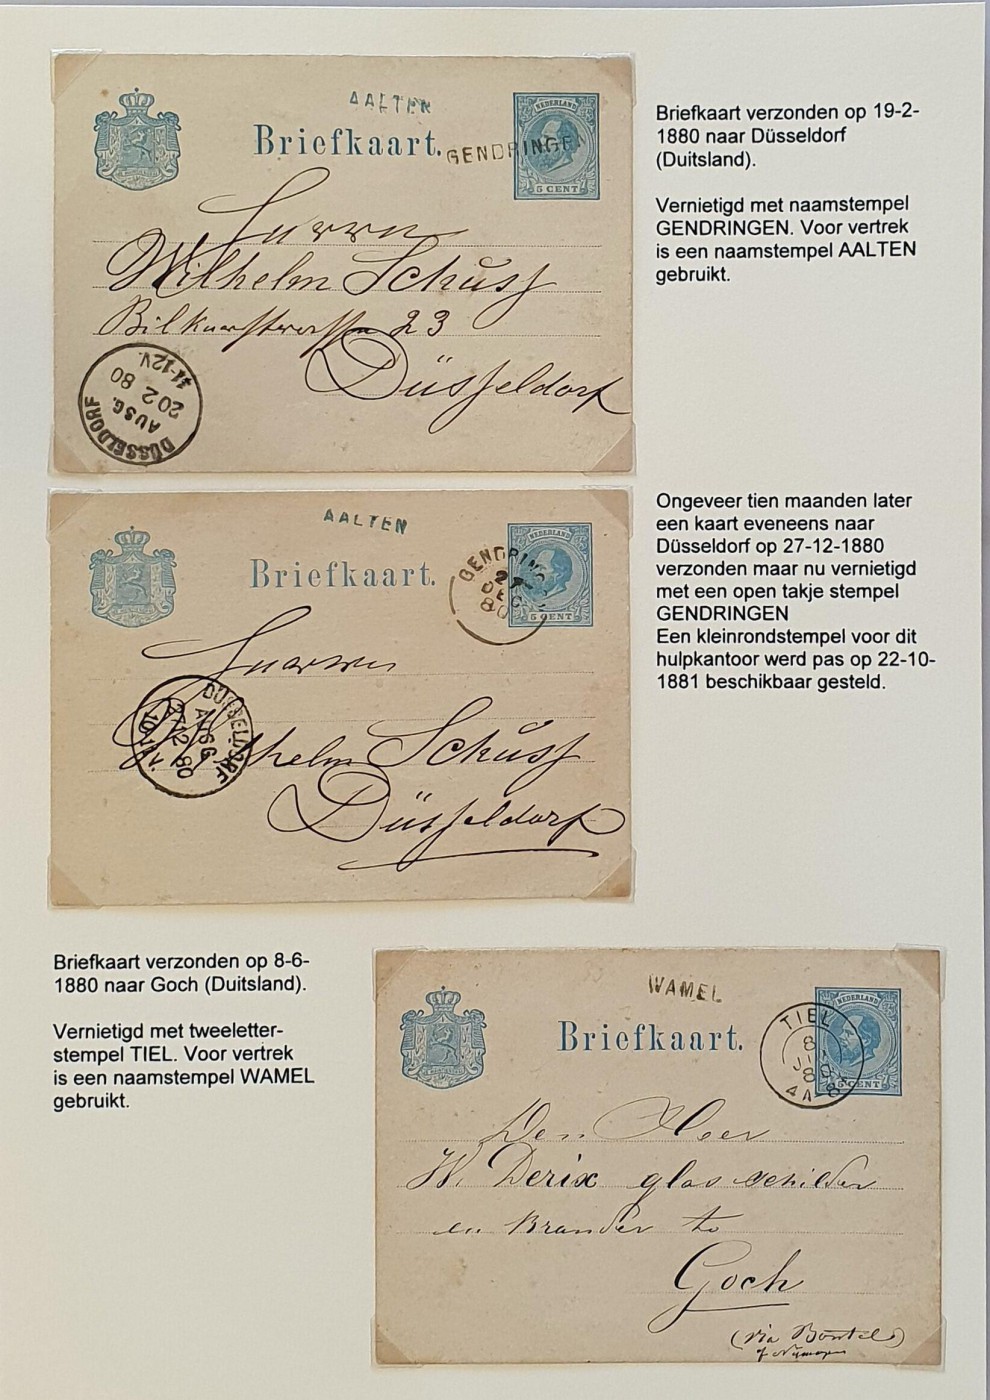 AALTEN
Briefkaart.
GENDRINGEN
NEDERLAND
5 CENT
Wilhelm Schüss
23
Düsseldorf
DÜSSELDORF
AUSG.
20 2 80
11-12V.
Briefkaart verzonden op 19-2-
1880 naar Düsseldorf
(Duitsland).
Vernietigd met naamstempel
GENDRINGEN. Voor vertrek
is een naamstempel AALTEN
gebruikt.
AALTEN
Briefkaart.
NEDERLAND
5 CENT
GENDRING
27
DEC
80
Wilhelm Schüss
Düsseldorf
DÜSSELDORF
AUSG.
12 80
Ongeveer tien maanden later
een kaart eveneens naar
Düsseldorf op 27-12-1880
verzonden maar nu vernietigd
met een open takje stempel
GENDRINGEN
Een kleinrondstempel voor dit
hulpkantoor werd pas op 22-10-
1881 beschikbaar gesteld.
Briefkaart verzonden op 8-6-
1880 naar Goch (Duitsland).
Vernietigd met tweeletter-
stempel TIEL. Voor vertrek
is een naamstempel WAMEL
gebruikt.
WAMEL
Briefkaart.
NEDERLAND
5 CENT
TIEL
8
80
4 A-8
Den Heer
W. Derix glasschilder
en Brander te
Goch
(via Boxtel)
of Nijmegen